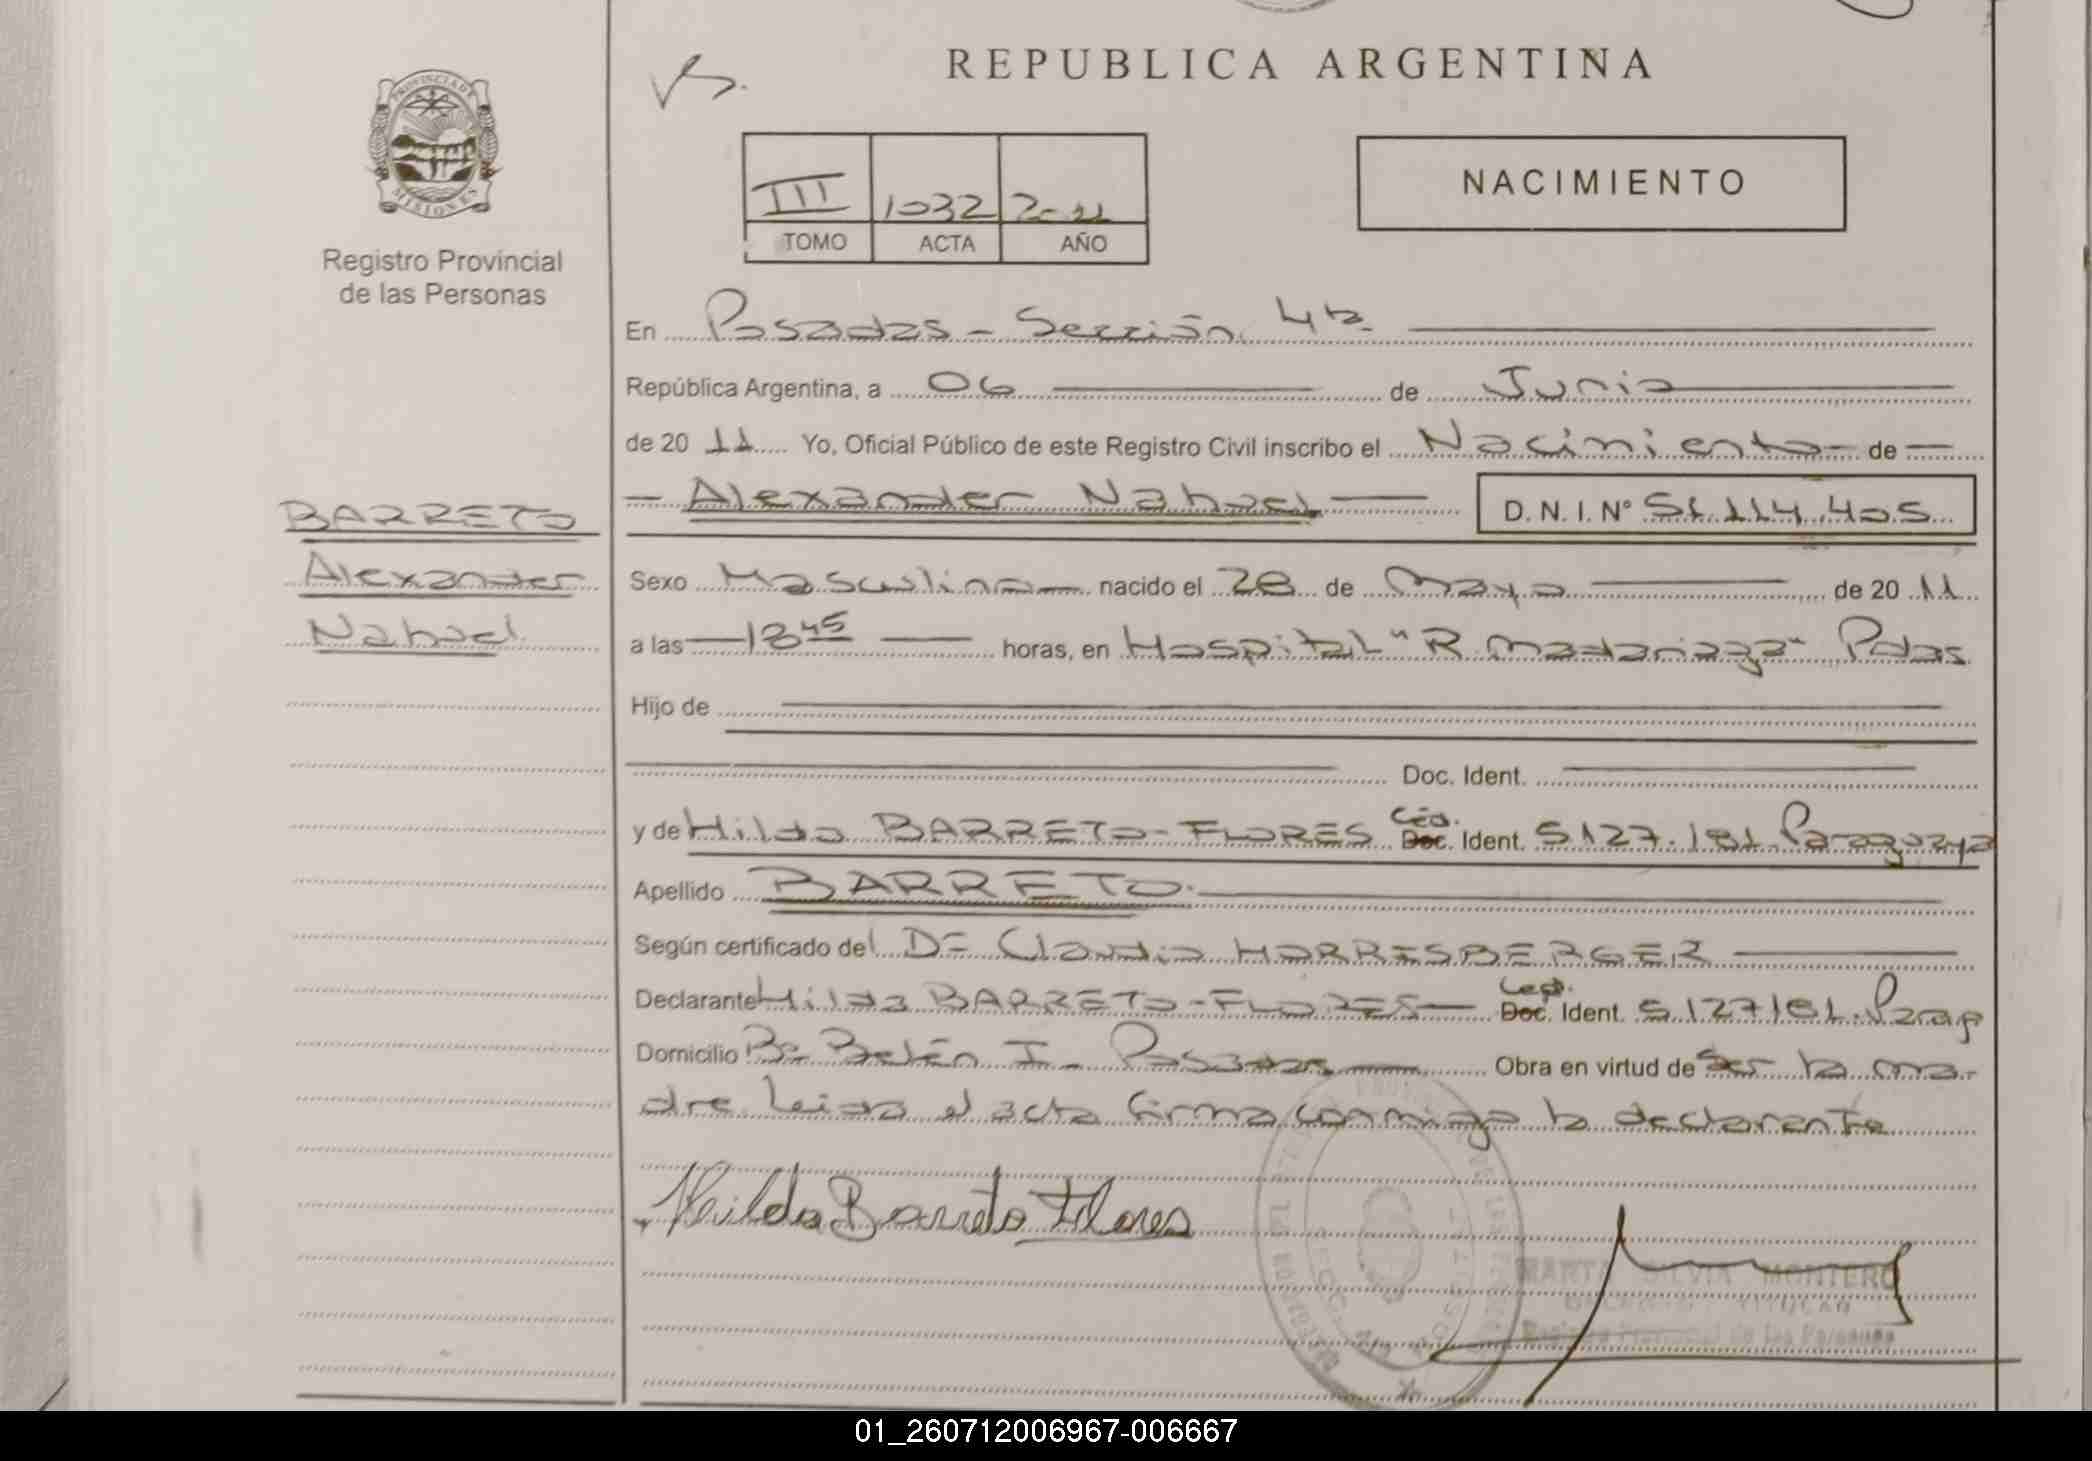 REPUBLICA ARGENTINA
PROVINCIA DE
MISIONES
Registro Provincial
de las Personas
III 1032 2011
TOMO ACTA AÑO
NACIMIENTO
En Posadas - Sección 4ta.
República Argentina, a 06 de Junio
de 20 11 Yo, Oficial Público de este Registro Civil inscribo el Nacimiento de
Alexander Nahuel D. N. I. N° 51.114.405
BARRETO
Alexander
Nahuel
Sexo Masculino nacido el 28 de Mayo de 20 11
a las 18 45 horas, en Hospital "R. Madariaga" Pdas
Hijo de
Doc. Ident.
y de Hilda BARRETO-FLORES Céd. Doc. Ident. 5127.181 Paraguaya
Apellido BARRETO.
Según certificado del Dr Claudio HARRESBERGER
Declarante Hilda BARRETO-FLORES Ced. Doc. Ident. 5.127181. Parag
Domicilio Bo Belén I - Posadas Obra en virtud de Ser la ma-
dre. Leida el acta firma conmigo la declarante
Hilda Barreto Flores
MARTA SILVIA MONTERO
TITULAR
Registro Provincial de las Personas
01_260712006967-006667